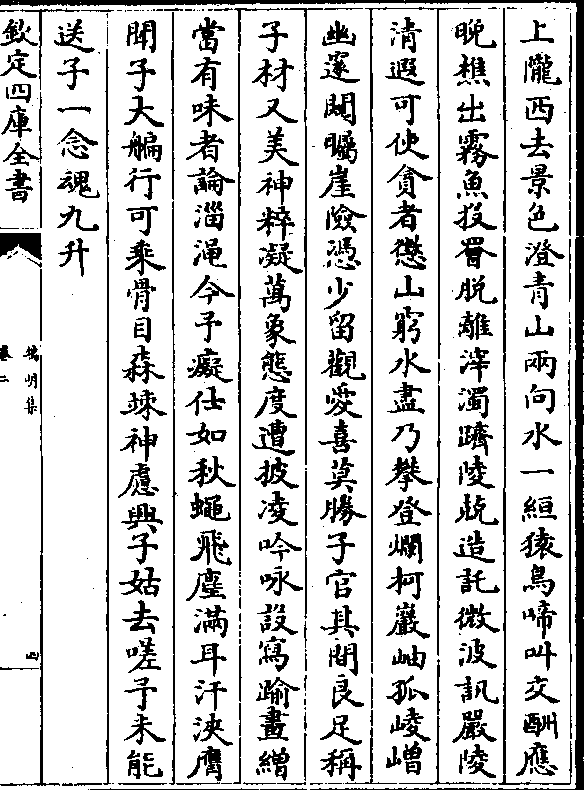 上隴西去景色澄青山兩向水一絙猿鳥啼叫交酬應
晚樵出霧魚投罾脫離滓濁躋陵兢造託微波訊嚴陵
清遐可使貪者懲山窮水盡乃攀登爛柯巖岫孤崚嶒
幽邃闃矚崖險憑少留觀愛喜莫勝子官其間良足稱
子材又美神粹凝萬象態度遭披凌吟咏設寫踰畫繒
當有味者論淄澠今予癡仕如秋蠅飛塵滿耳汗浹膺
聞子大艑行可乘骨目森竦神慮興子姑去嗟予未能
送子一念魂九升
欽定四庫全書
卷二
四